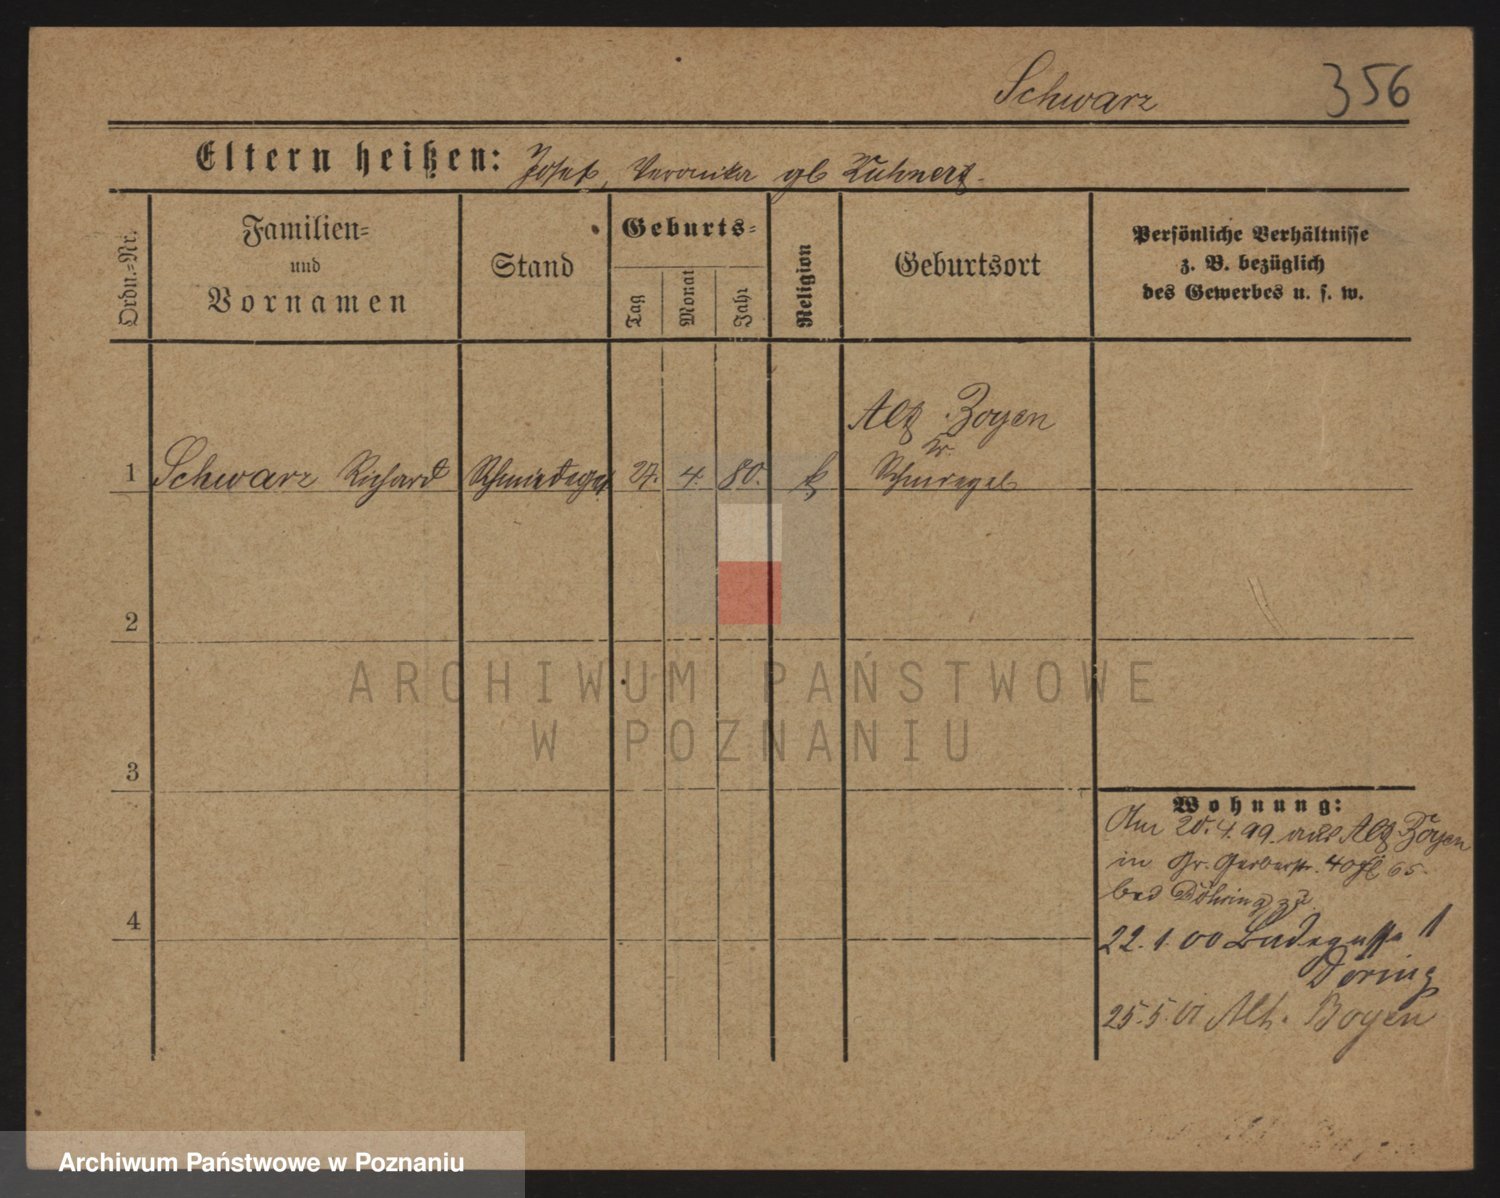 Schwarz 356
Eltern heißen: Josef, Veronika gb Kuhnert.
Ordn.=Nr.
Familien=
und
Vornamen
Stand
Geburts=
Tag
Monat
Jahr
Religion
Geburtsort
Persönliche Verhältnisse
z. B. bezüglich
des Gewerbes u. s. w.
Alt Boyen
Kr.
1 Schwarz Richard Schmiedeges 27. 4. 80. k Schmiegel
2
ARCHIWUM PAŃSTWOWE
W POZNANIU
3
Wohnung:
Am 20.4.99. aus Alt Boyen
in Gr. Gerberstr. 40 65
bei Döhring zu
4
22.1.00 Badegasse 1
Döring
25.5.01 Alt. Boyen
Archiwum Państwowe w Poznaniu